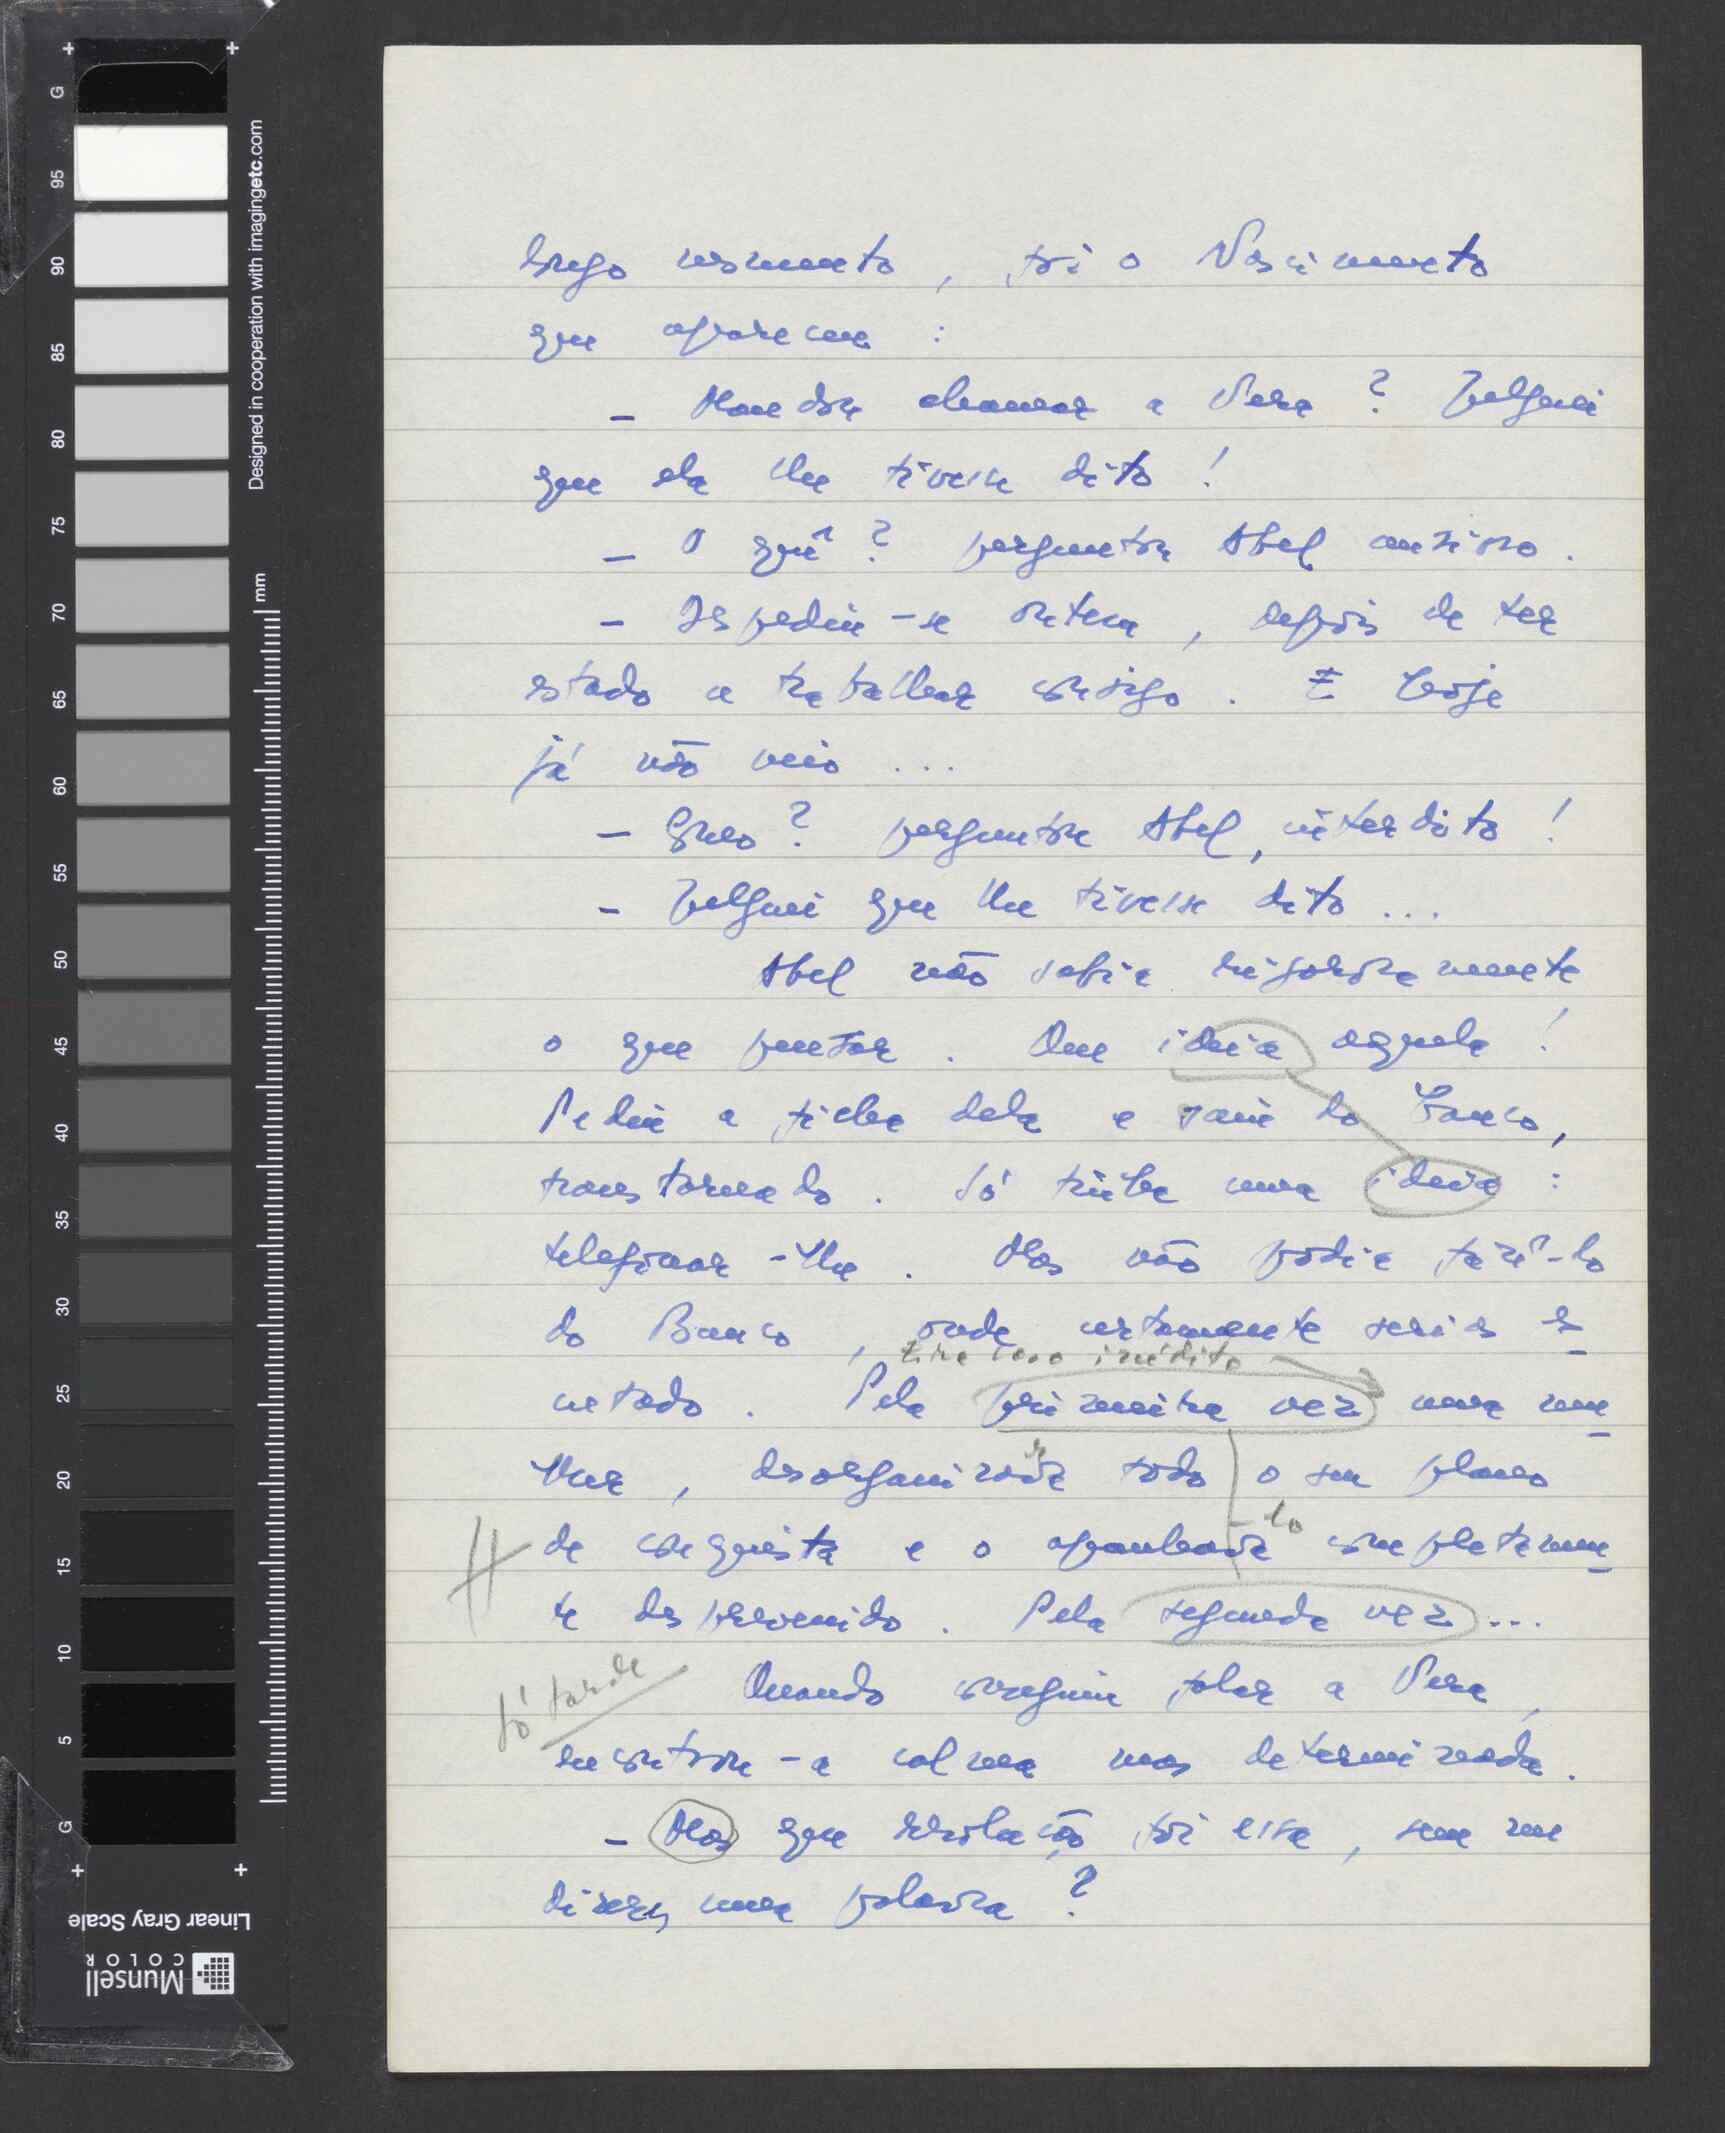 longo momento, foi o Nascimento
que apareceu :
– Mandou chamar a Vera ? Julguei
que ela lhe tivesse dito !
– O quê ? perguntou Abel ansioso.
– Despediu-se ontem, depois de ter
estado a trabalhar consigo. E hoje
já não veio ...
– Como ? perguntou Abel, interdito !
– Julguei que lhe tivesse dito ...
Abel não sabia rigorosamente
o que pensar. Que ideia aquela !
Pediu a ficha dela e saiu do Banco,
transtornado. Só tinha uma ideia :
telefonar-lhe. Mas não podia fazê-lo
do Banco, onde certamente seria es
cutado. Pela primeira vez uma mu
lher, desorganizava todo o seu plano
de conquista e o apanhava completamen
te desprevenido. Pela segunda vez ...
Quando conseguiu falar a Vera,
encontrou-a calma mas determinada.
– Mas que resolução foi essa, sem me
dizeres uma palavra ?
-lo
só tarde
Designed in cooperation with imagingetc.com
mm
G
95
90
85
80
75
70
65
60
55
50
45
40
35
30
25
20
15
10
5
G
Linear Gray Scale
Munsell
COLOR